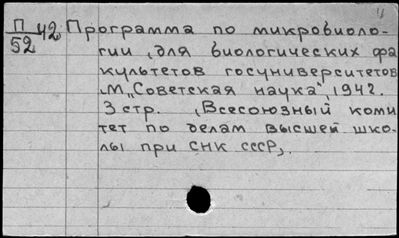 П/52 42 Программа по микробиоло-
гии, для биологических фа
культетов госуниверситетов
М. „Советская наука", 1942.
3 стр. (Всесоюзный коми
тет по делам высшей шко-
лы при СНК СССР).